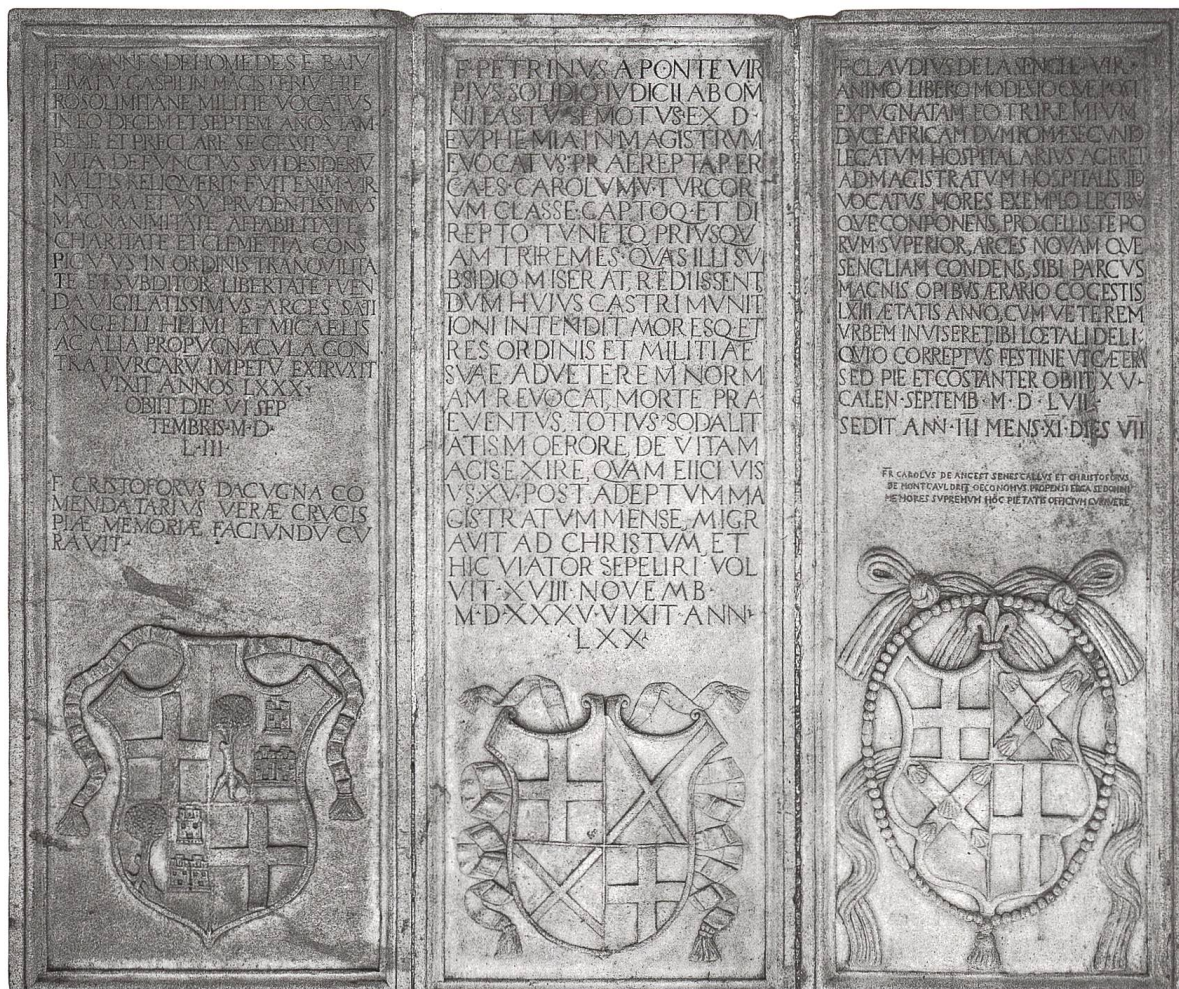 F IOANNES DE HOMEDES E BAIV
LIVATV CASPE IN MAGISTERIVM HIE
ROSOLIMITANE MILITIE VOCATVS
IN EO DECEM ET SEPTEM ANOS TAM
BENE ET PRECLARE SE GESSIT VT
VITA DEFVNCTVS SVI DESIDERIV
MVLTIS RELIQVERIT FVIT ENIM VIR
NATVRA ET VSV PRVDENTISSIMVS
MAGNANIMITATE AFFABILITATE
CHARITATE ET CLEMETIA CONS
PICVVS IN ORDINIS TRANQVILITA
TE ET SVBDITOR LIBERTATE TVEN
DA VIGILATISSIMVS ARCES SATI
ANGELLI HELMI ET MICAELIS
AC ALIA PROPVGNACVLA CON
TRA TVRCARV IMPETV EXTRVXIT
VIXIT ANNOS LXXX·
OBIIT DIE VI SEP
TEMBRIS·M·D·
L·III·
F CRISTOFORVS DACVGNA CO
MENDATARIVS VERÆ CRVCIS
PIÆ MEMORIÆ FACIVNDV CV
RAVIT·
F·PETRINVS A PONTE VIR
PIVS SOLIDIO IVDICII AB OM
NI FASTV SEMOTVS·EX D·
EVPHEMIA IN MAGISTRVM
EVOCATVS·PRAEREPTA PER
CAES·CAROLVM·V·TVRCOR
VM CLASSE·CAPTOQ·ET DI
REPTO TVNETO PRIVSQV
AM TRIREMES·QVAS ILLI SV
BSIDIO MISERAT, REDIISSENT,
DVM HVIVS CASTRI MVNIT
IONI INTENDIT MORESQ·ET
RES ORDINIS ET MILITIAE
SVAE AD VETEREM NORM
AM REVOCAT, MORTE PRA
EVENTVS TOTIVS SODALIT
ATIS MOERORE, DE VITAM
AGIS EXIRE, QVAM EIICI VIS
VS·XV·POST ADEPTVM MA
GISTRATVM MENSE, MIGR
AVIT AD CHRISTVM, ET
HIC VIATOR SEPELIRI VOL
VIT·XVIII·NOVEMB·
M·D·XXXV·VIXIT·ANN·
·LXX·
F·CLAVDIVS DE LA SENGLE VIR·
ANIMO LIBERO MODESTO QVE POST
EXPVGNATAM EO TRIREMIVM
DVCE AFRICAM DVM ROMÆ SECVNDO
LEGATVM HOSPITALARIVS AGERET
AD MAGISTRATVM HOSPITALIS
VOCATVS MORES EXEMPLO LEGIBV
QVE CONPONENS, PROCELLIS TEPO
RVM SVPERIOR, ARCES NOVAM QVE
SENGLIAM CONDENS, SIBI PARCVS
MAGNIS OPIBVS ÆRARIO COGESTIS
LXIII ÆTATIS ANNO, CVM VETEREM
VRBEM INVISERET, IBI LŒTALI DELI·
QVIO CORREPTVS FESTINE VT CÆTERA
SED PIE ET COSTANTER OBIIT, XV·
CALEN·SEPTEMB·M·D·LVII·
SEDIT ANN·III MENS·XI·DIES VII
FR CAROLVS DE ANGEST SENESCALLVS ET CHRISTOFORVS
DE MONTGAVLDRIT OECONOMVS PROPENSI ERGA SE DOMINI
MEMORES SVPREMVM HOC PIETATIS OFFICIVM CVRAVERE